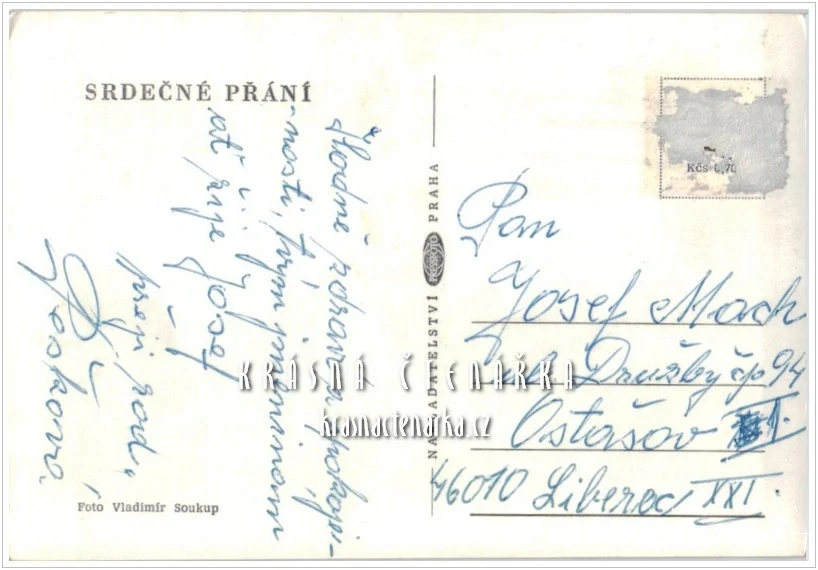 SRDEČNÉ PŘÁNÍ
Hodně zdraví, spokoje-
nosti, k tvým jmeninám
ať žije Josef
přeji
Foto Vladimír Soukup
NAKLADATELSTVÍ PRESSFOTO PRAHA
Kčs 0,70
Pan
Josef Mach
ul. Družby čp 94
Ostašov
46010 Liberec XXI.
KRÁSNÁ ČTENÁŘKA
krasnactenarka.cz